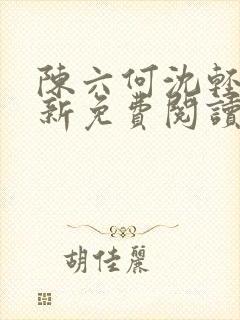 陳六何沈輕
新免費閱讀
胡佳麗